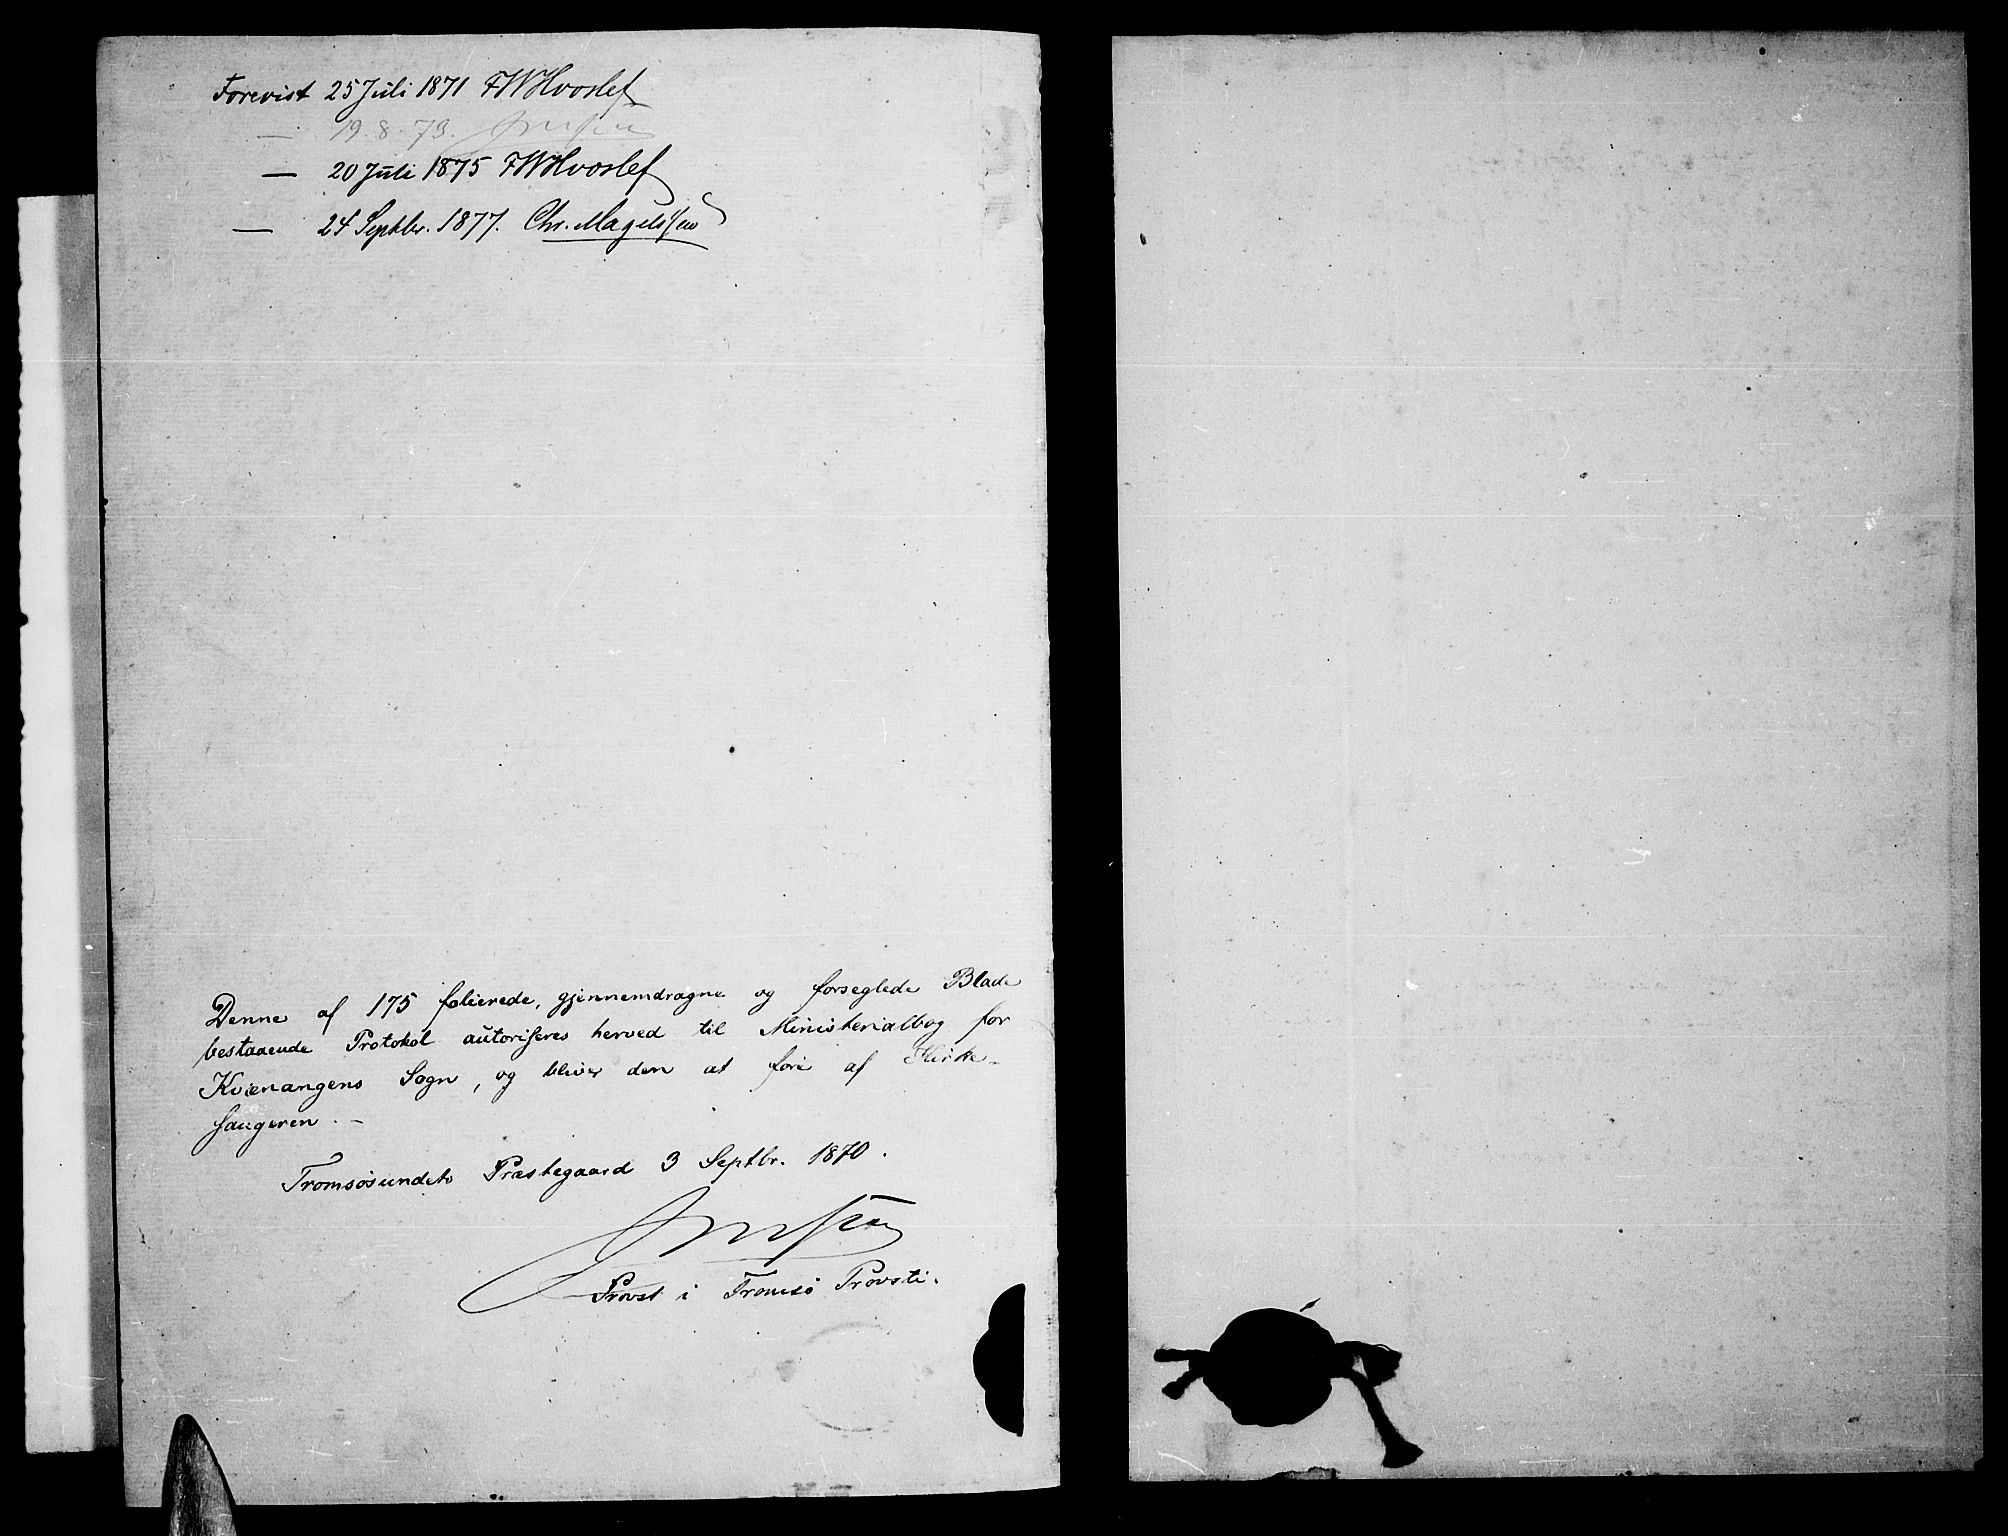 Forevist 25 Juli 1871 FWHvoslef
— 19. 8. 73.
— 20 Juli 1875 FWHvoslef
— 24 Septbr. 1877. Chr. Magelsſen
Denne af 175 folierede, gjennemdragne og forseglede Blade
bestaaende Protokol autoriſeres herved til Ministerialbog for
Kvænangens Sogn, og bliver den at føre af Kirke-
ſangeren. —
Tromsøsundets Præstegaard 3 Septbr. 1870.
Provst i Tromsø Provsti.